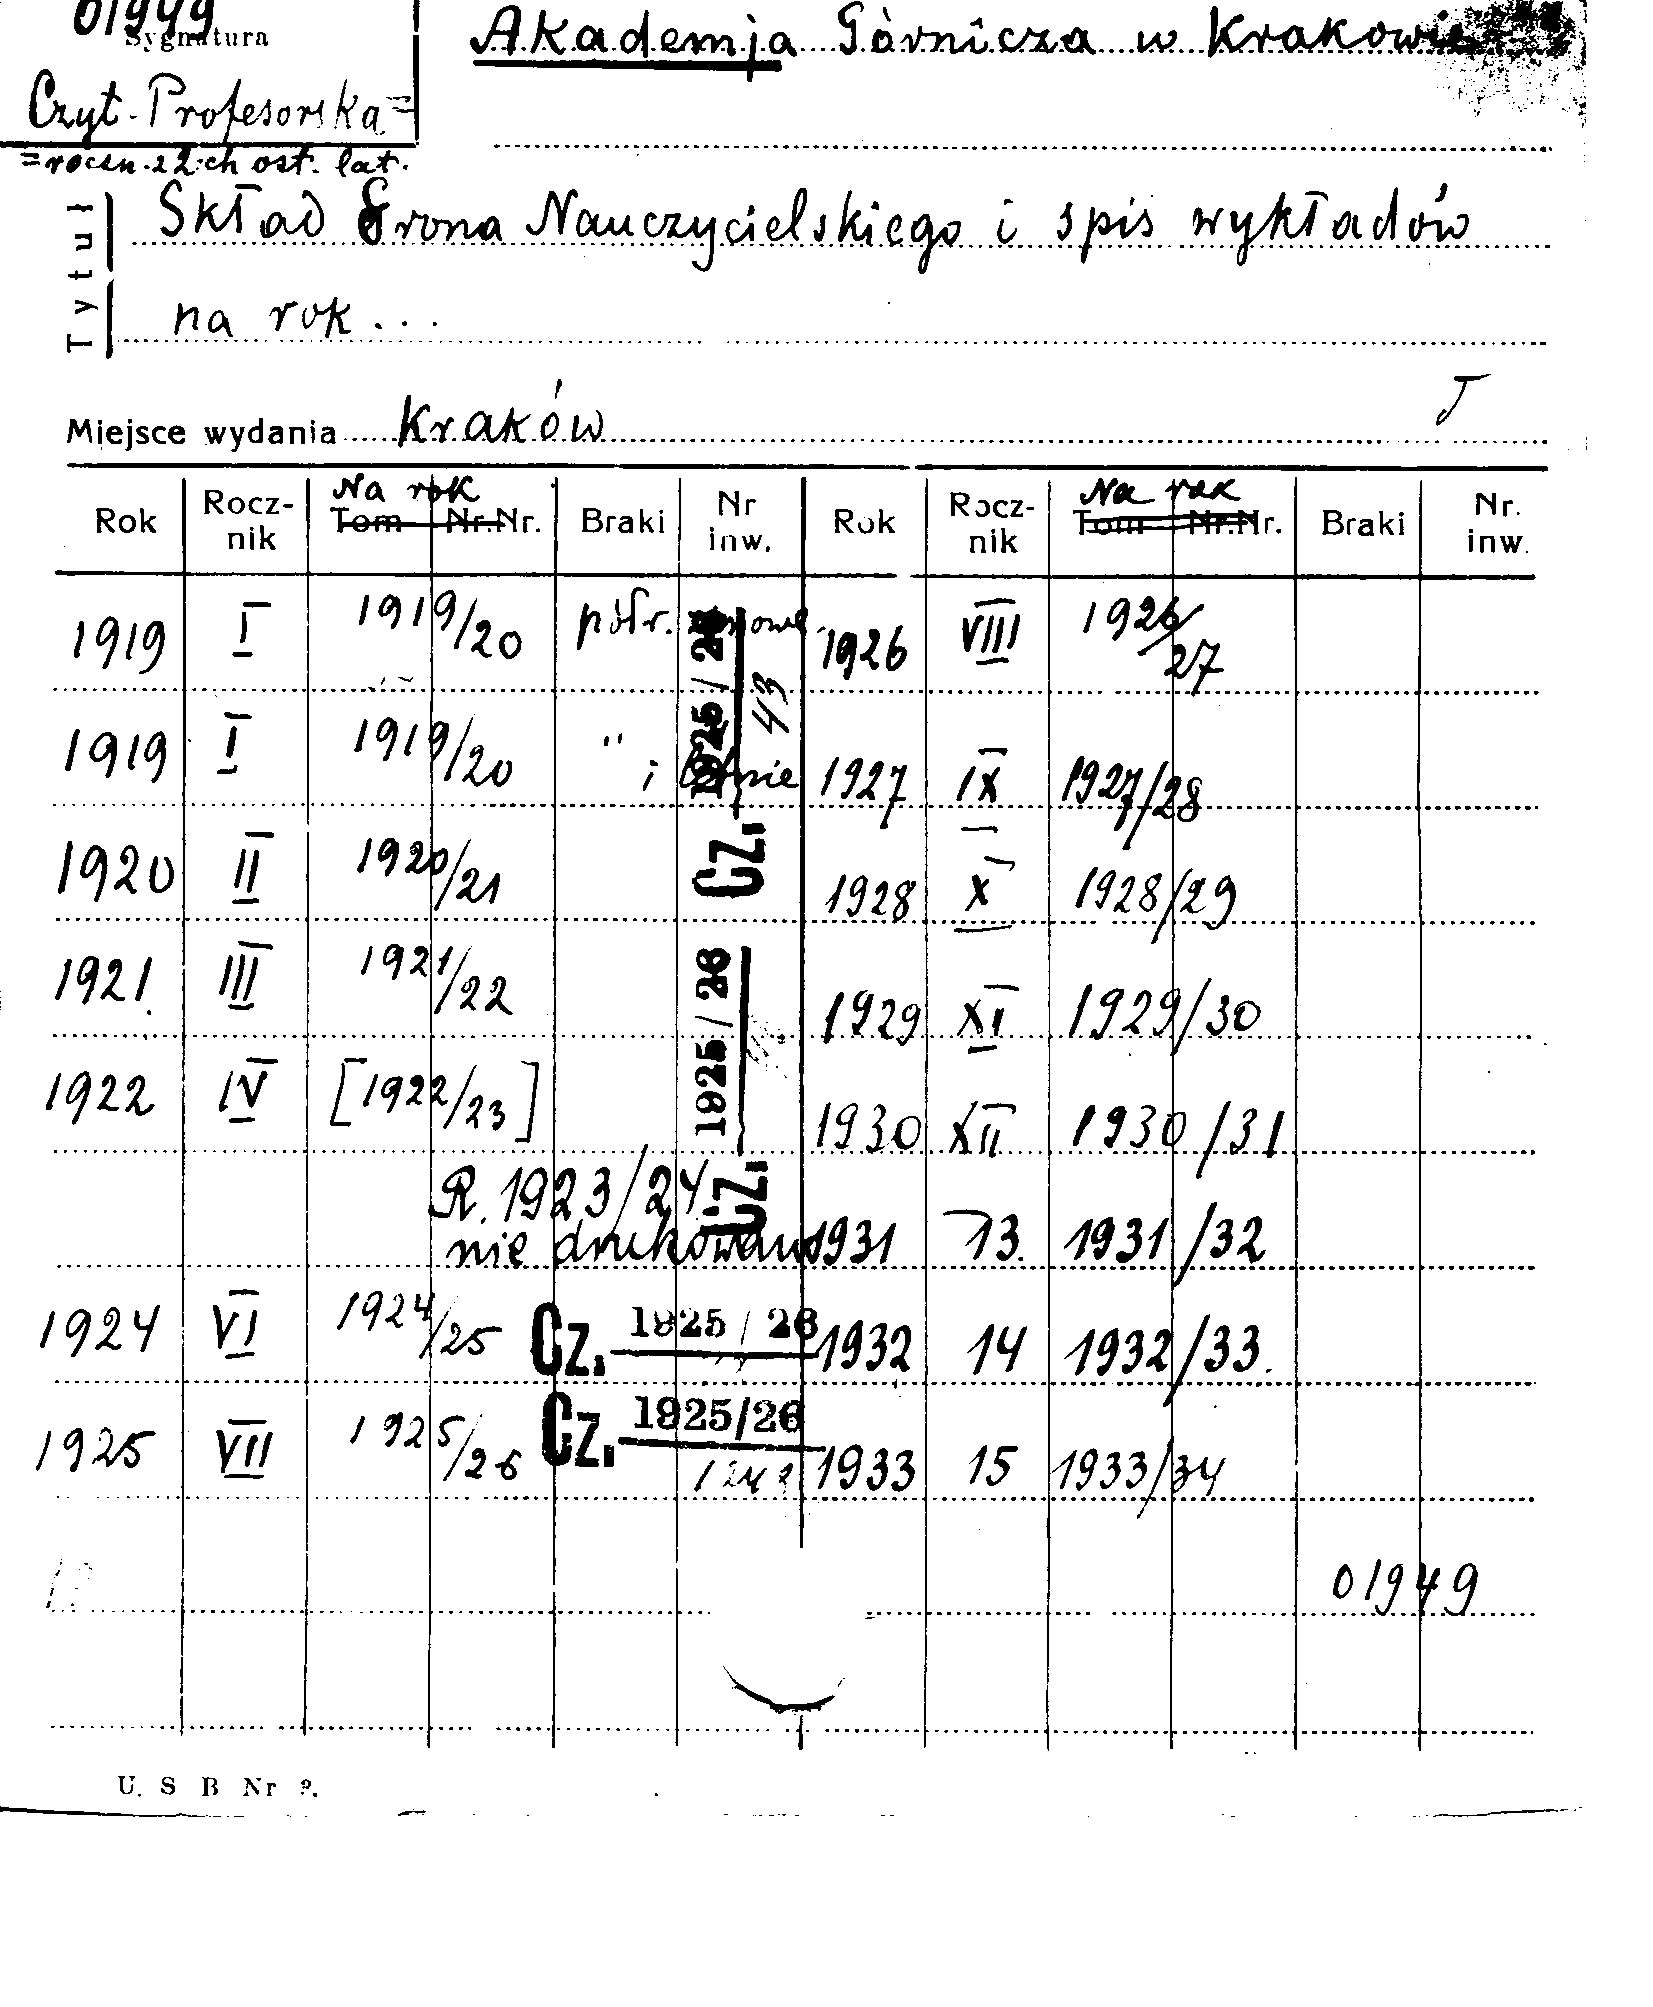 01949
Sygnatura
Czyt. Profesorska=
=roczn. z 2.ch ost. lat.
Akademja Górnicza w Krakowie
Tytuł
Skład Grona Nauczycielskiego i spis wykładów
na rok...
Miejsce wydania Kraków
Rok Rocz-nik Na rok Tom Nr.Nr. Braki Nr inw. Rok Rocz-nik Na rok Tom Nr.Nr. Braki Nr. inw.
1919 I 1919/20 półr. 1926 VIII 1926/27
1919 I 1919/20 " i letnie 1927 IX 1927/28
1920 II 1920/21 1928 X 1928/29
1921. III 1921/22 1929 XI 1929/30
1922 IV [1922/23] 1930 XII 1930/31
R. 1923/24 nie drukowano 1931 13. 1931/32
1924 VI 1924/25 1932 14 1932/33.
1925 VII 1925/26 1933 15 1933/34
Cz. 1925/26
43
Cz. 1925/26
Cz. 1925/26
Cz. 1925/26
01949
U. S B Nr 9.